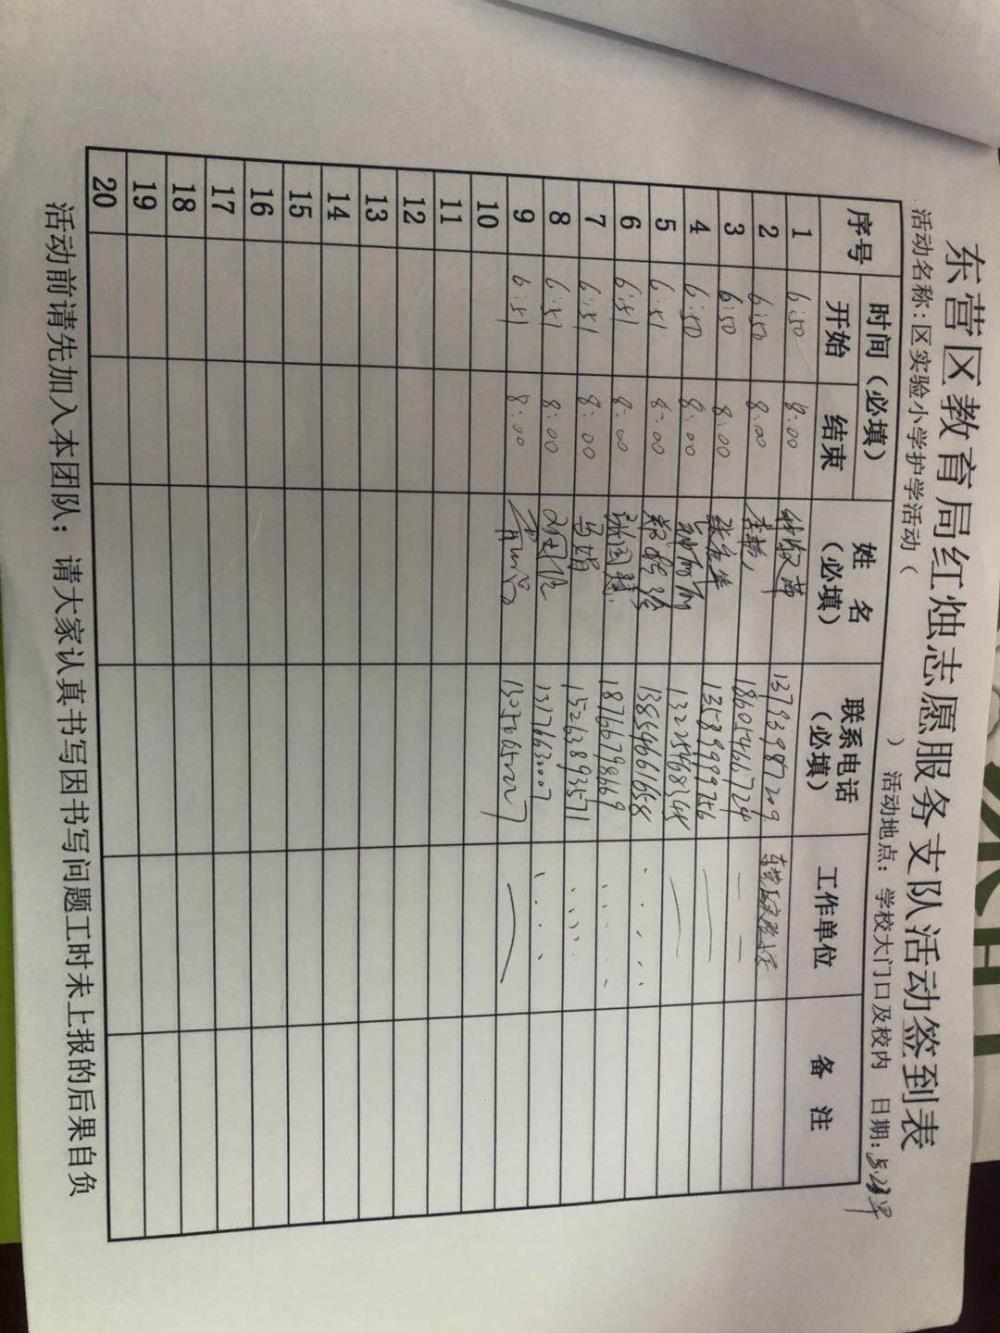 东营区教育局红烛志愿服务支队活动签到表
活动名称：区实验小学护学活动（ ） 活动地点：学校大门口及校内 日期：
序号 时间（必填） 姓 名（必填） 联系电话（必填） 工作单位 备 注
开始 结束
1 6:50 8:00 13793987209 东营区实验小学
2 6:50 8:00 李艳 18605466724
3 6:50 8:00 张庆华 13589999756
4 6:50 8:00
5 6:51 8:00 13854661658
6 6:51 8:00 张国慧 18766798669
7 6:51 8:00 马娟 15263893571
8 6:51 8:00
9 6:51 8:00
10
11
12
13
14
15
16
17
18
19
20
活动前请先加入本团队；请大家认真书写因书写问题工时未上报的后果自负